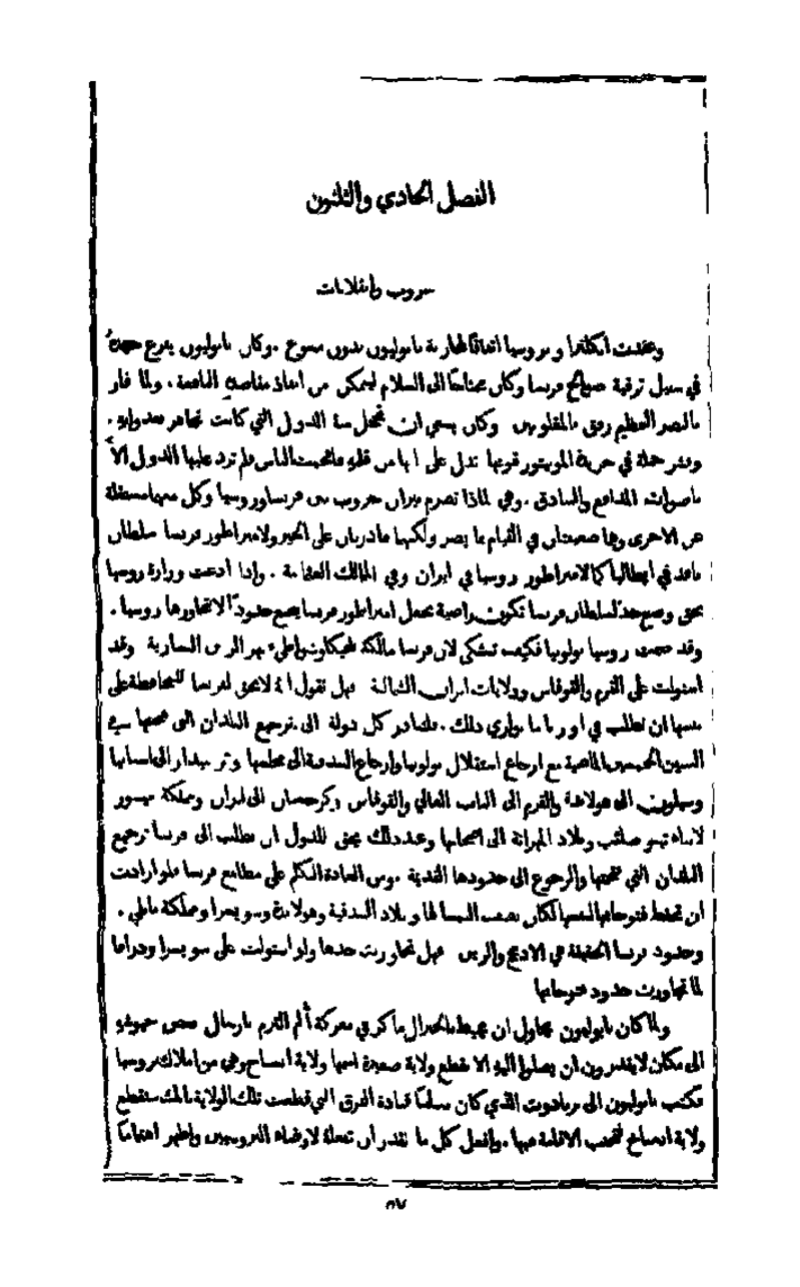 الفصل الحادي والثلثون
حروب وانقلابات
وعقدت انكلترا وبروسيا اتفاقا لمحاربة نابوليون بدون مسوع . وكان نابوليون يفرغ جهده
في سبيل ترقية صوالح فرنسا وكان محتاجا الى السلام ليتمكن من انفاذ مقاصده النافعة . ولما فاز
بالنصر العظيم رفق بالمغلوبين وكان يسعى ان تخجل منه الدول التي كانت تجاهر بعدوانه .
ونشر جملة في جريدة المونيتور قوتها تدل على انها من قلمه فاعجبت الناس فلم ترد عليها الدول الا
باصوات المدافع والبنادق . وهي لماذا تضرم نيران حروب بين فرنسا وروسيا وكل منهما مستقلة
عن الاخرى وهما ضعيفتان في القيام بما يضر ولكنهما قادرتان على الخير ولامبراطور فرنسا سلطان
نافذ في ايطاليا كما لامبراطور روسيا في ايران وفي المالك العثمانية . واذا ادعت وزارة روسيا
بحق وضع حد لسلطان فرنسا تكون راضية بجعل امبراطور فرنسا يضع حدودا لا تتجاوزها روسيا .
وقد قسمت روسيا بولونيا فكيف تشكى لان فرنسا مالكة بلجيكا وشواطئ نهر الرين اليسارية وقد
استولت على القرم والقوقاس وولايات ايران الشمالية فهل تقول انه لا يحق لفرنسا للمحافظة على
نفسها ان تطلب في اوربا ما يوازي ذلك . فلتبادر كل دولة الى ترجيع البلدان التي فتحتها في
السنين الخمسين الماضية مع ارجاع استقلال بولونيا وارجاع البندقية الى مجلسها وترينيدار الى اسبانيا
وسيلون الى هولاندة والقرم الى الباب العالي والقوقاس وكرجستان الى ايران ومملكة ميسور
لابناء تيبو صائب وبلاد المهراتة الى اصحابها وعند ذلك يحق للدول ان تطلب الى فرنسا ترجيع
البلدان التي فتحتها والرجوع الى حدودها القديمة . ومن العادة التكلم على مطامع فرنسا فلو ارادت
ان تحفظ فتوحاتها لنفسها لكان نصف النمسا لها وبلاد البندقية وهولاندة وسويسرا ومملكة نابلي .
وحدود فرنسا الحقيقية هي الاديج والرين فهل تجاوزت حدها ولو استولت على سويسرا ودراها
لما تجاوزت حدود فتوحاتها
ولما كان نابوليون يحاول ان يحيط بالجنرال ماك في معركة ألم التزم بارسال بعض جيوشه
الى مكان لا يقدرون ان يصلوا اليه الا بقطع ولاية صغيرة اسمها ولاية انسباخ وهي من املاك بروسيا
فكتب نابوليون الى برنادوت الذي كان مسلما قيادة الفرق التي قطعت تلك الولاية بانك ستقطع
ولاية انسباخ فتجنب الاقامة فيها . وافعل كل ما تقدر ان تفعلة لارضاء البروسيين واظهر اهتماما
٥٧